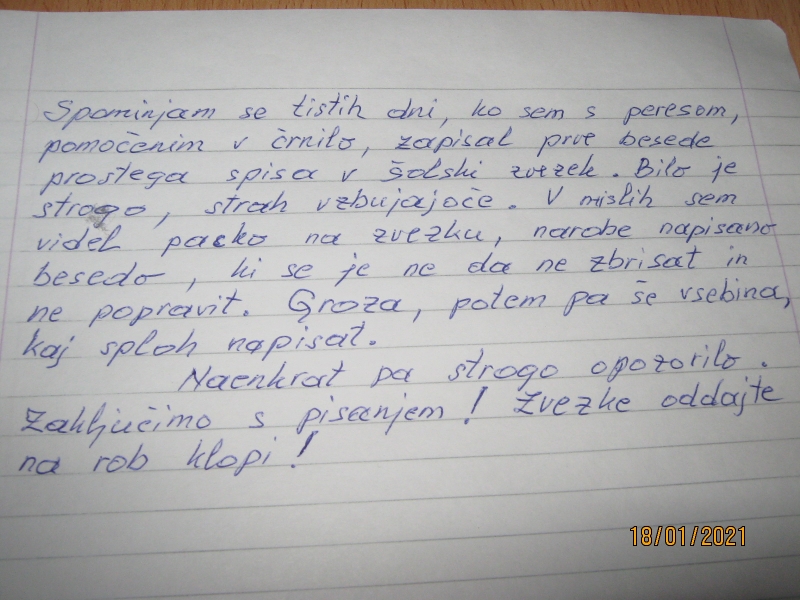 Spominjam se tistih dni, ko sem s peresom,
pomočenim v črnilo, zapisal prve besede
prostega spisa v šolski zvezek. Bilo je
strogo, strah vzbujajoče. V mislih sem
videl packo na zvezku, narobe napisano
besedo, ki se je ne da ne zbrisat in
ne popravit. Groza, potem pa še vsebina,
kaj sploh napisat.
Naenkrat pa strogo opozorilo.
Zaključimo s pisanjem! Zvezke oddajte
na rob klopi!
18/01/2021